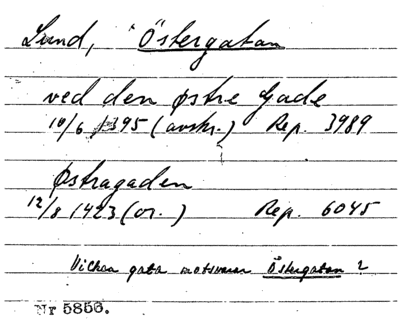 Lund, Östergatan
ved den østre Gade
10/6 1395 (avskr.) Rep. 3989
Østragaden
12/8 1423 (or.) Rep. 6045
Vilken gata motsvarar Östergatan?
Nr 5856.